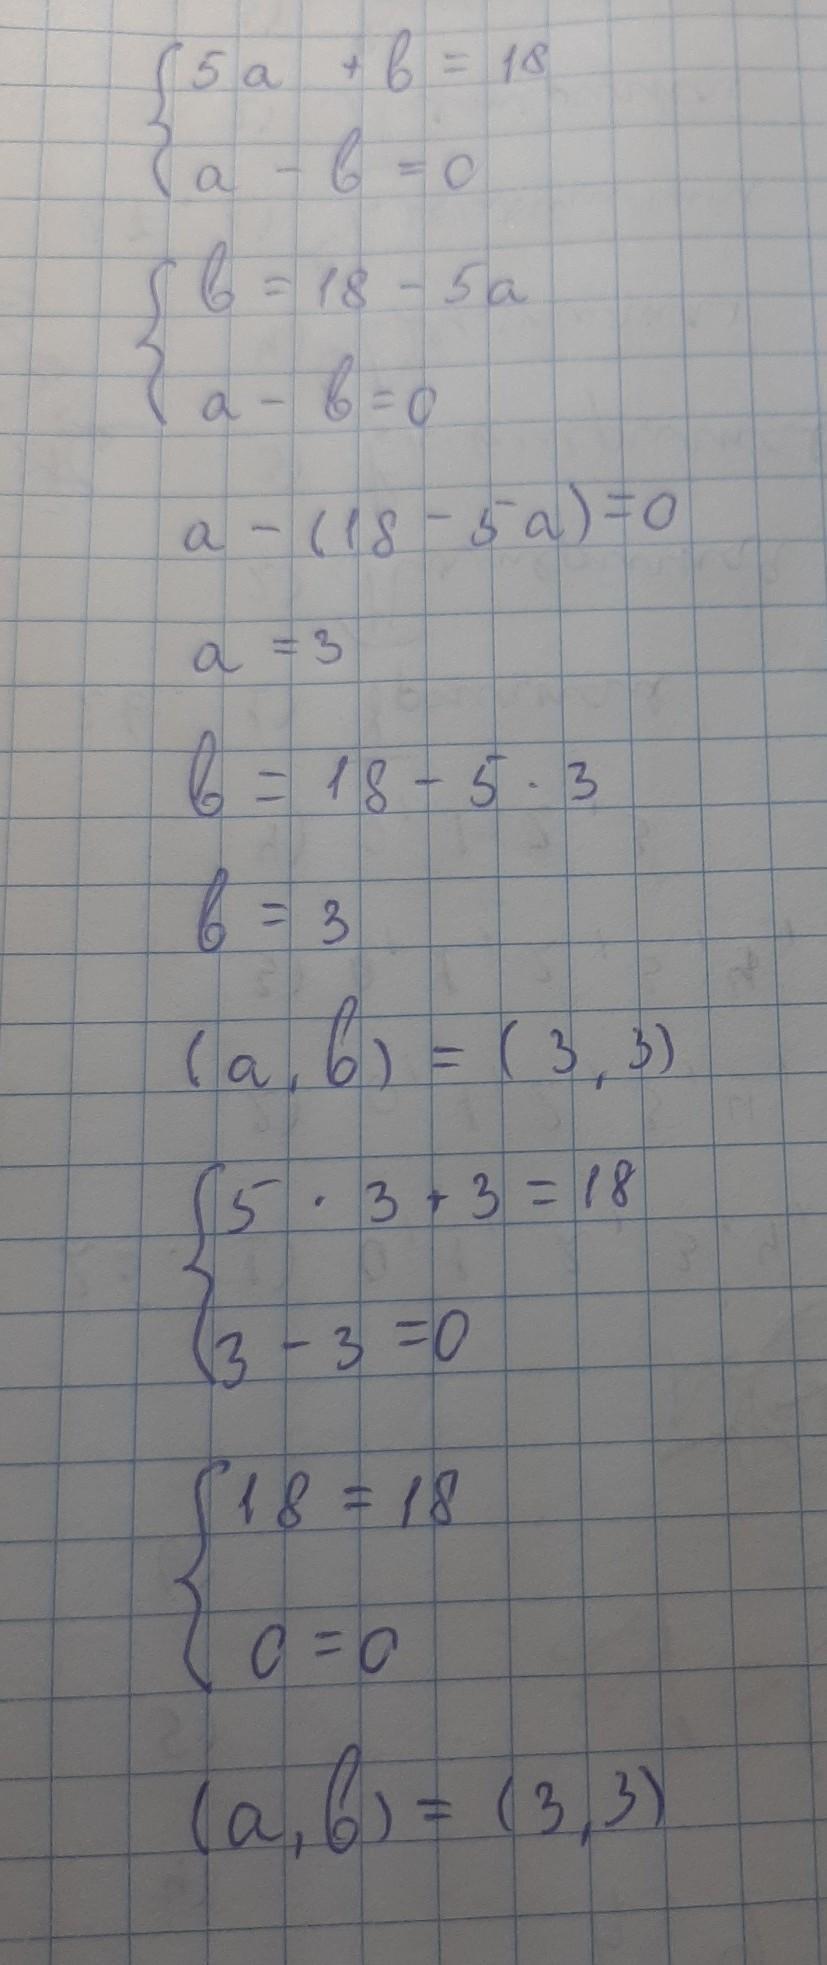 { 5a + b = 18
a - b = 0
{ b = 18 - 5a
a - b = 0
a - (18 - 5a) = 0
a = 3
b = 18 - 5 · 3
b = 3
(a, b) = (3, 3)
{ 5 · 3 + 3 = 18
3 - 3 = 0
{ 18 = 18
0 = 0
(a, b) = (3, 3)